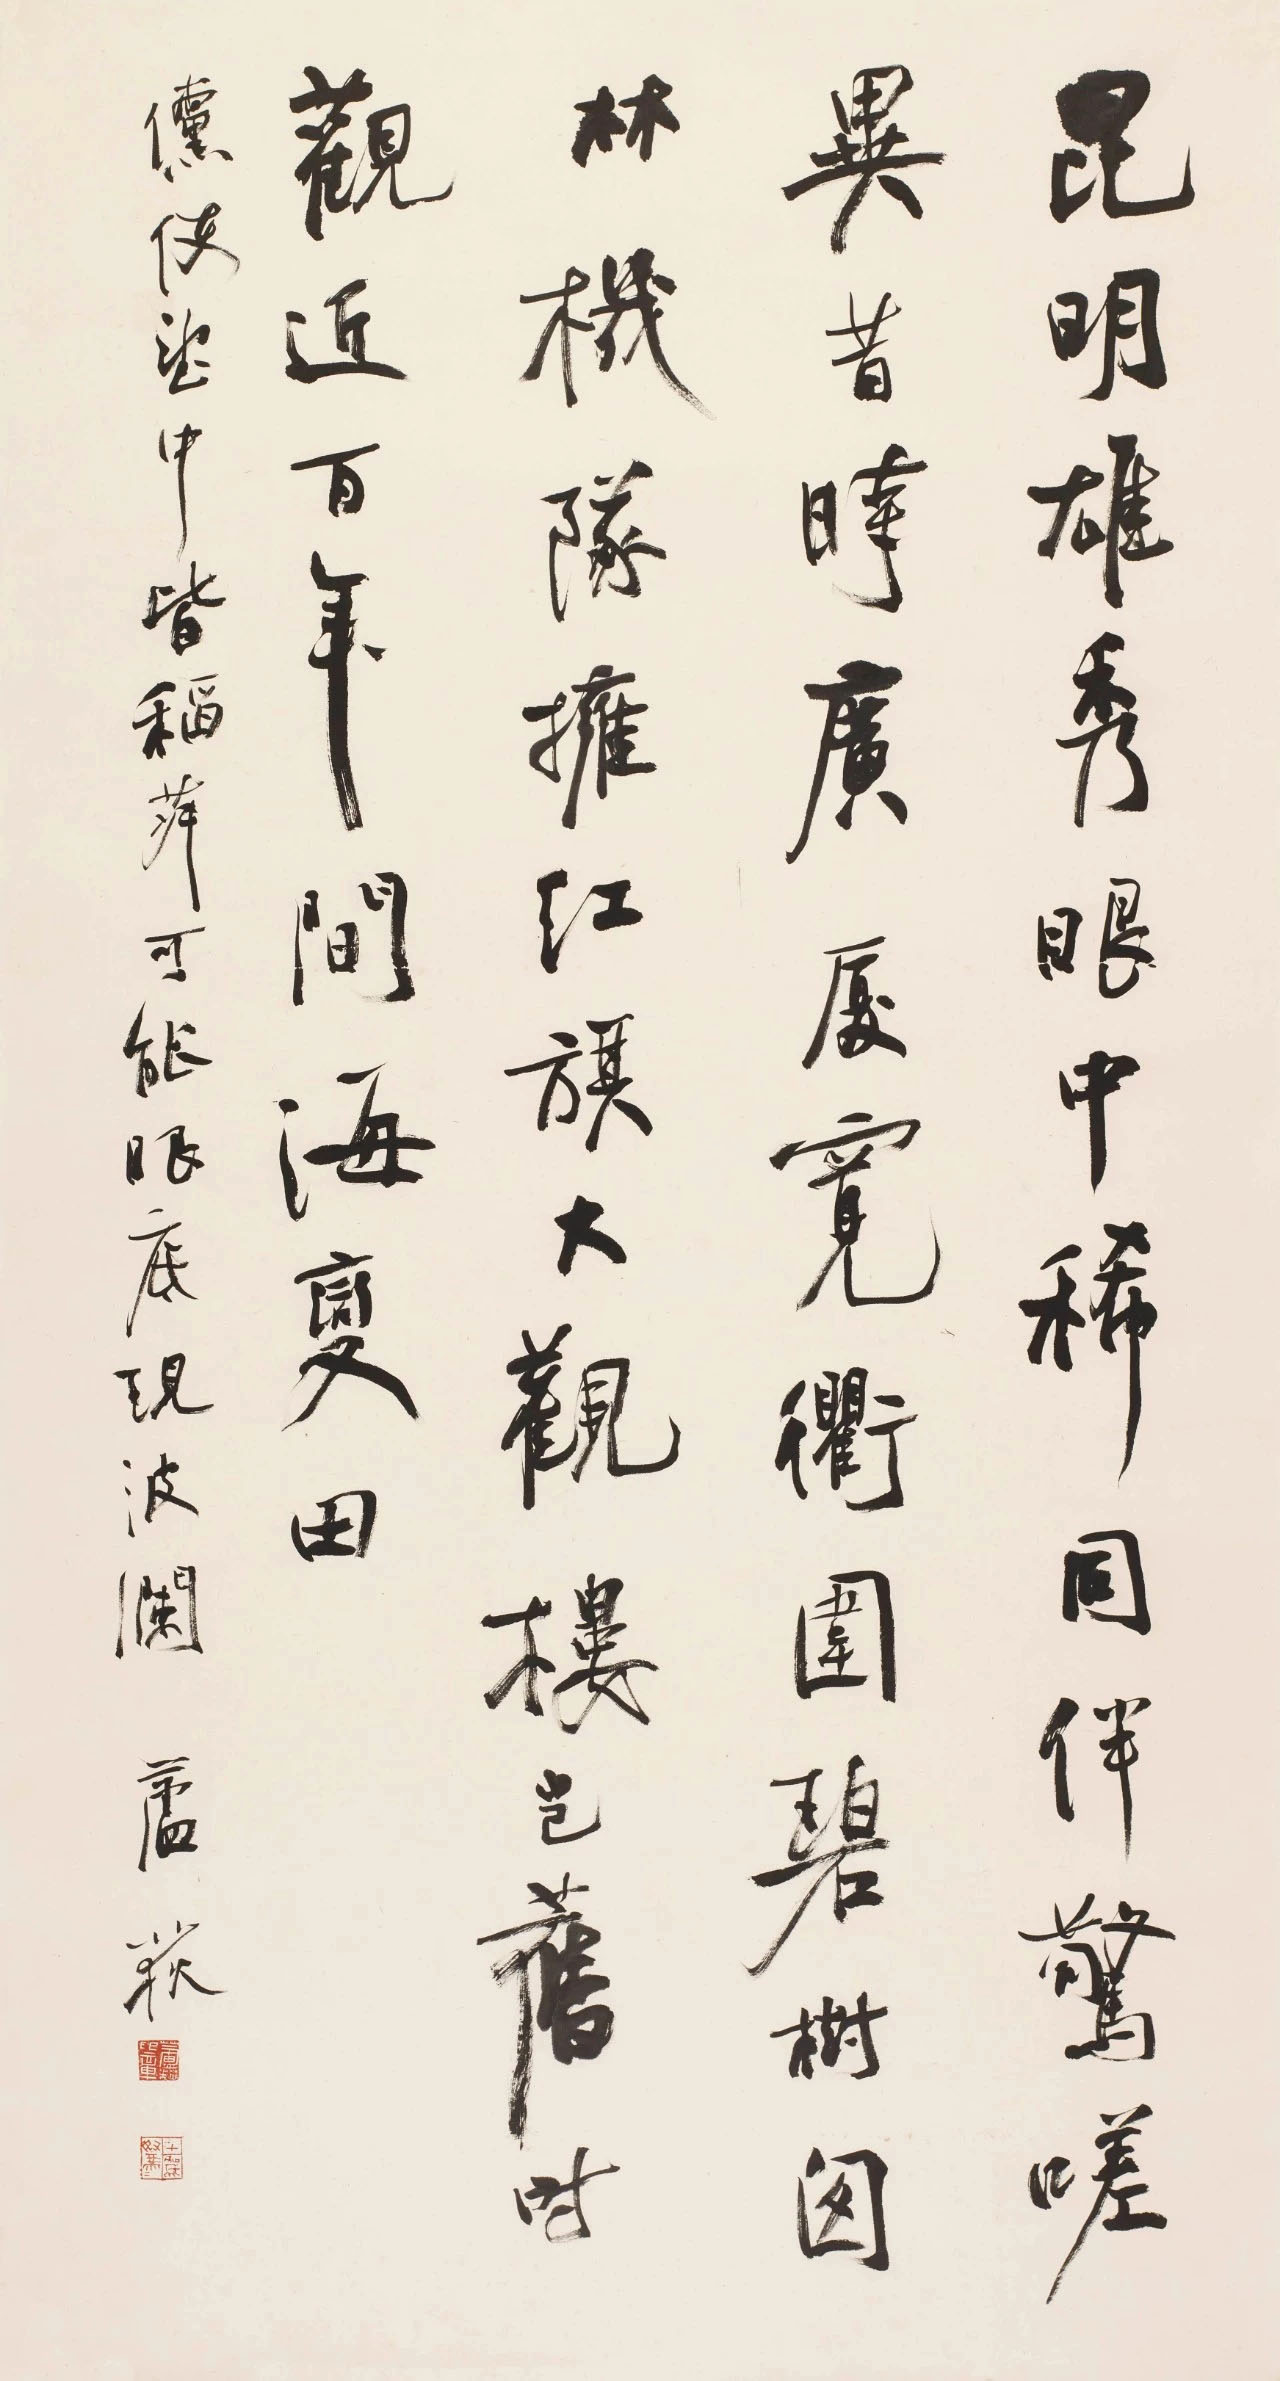 昆明雄秀眼中稀同伴驚嗟
異昔時廣厦寬衢圍碧樹囱
林機隊擁紅旗大觀樓豈舊时
觀近百年間海變田
儻使望中皆稻萍可能眼底現波瀾 蘆荻